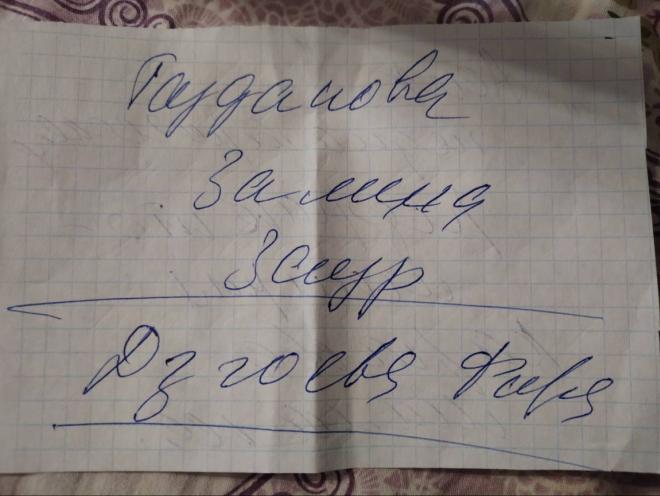 Гауданова
Залина
Заур
Дзгоева Фаря